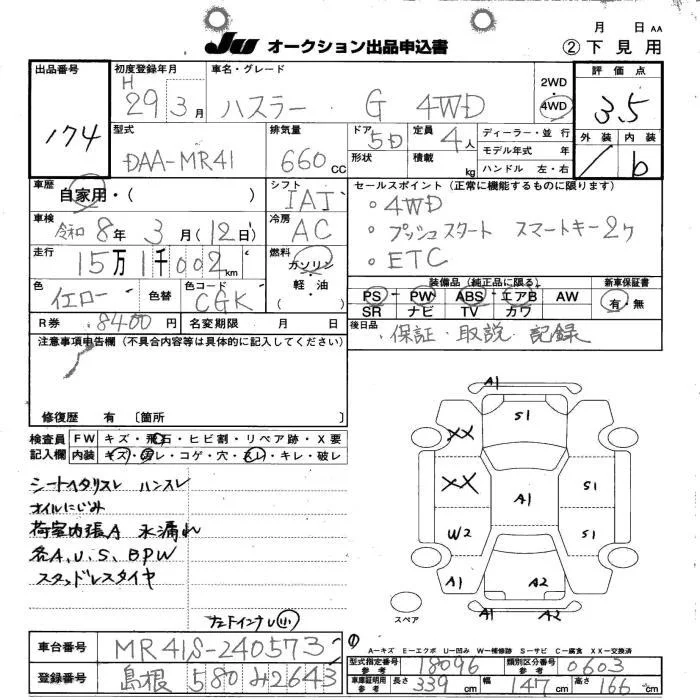 JU オークション出品申込書
月 日 AA
② 下見用
出品番号
174
初度登録年月
H 29 3月
車名・グレード
ハスラー ・ G 4WD
2WD・4WD
評価点
3.5
外装 内装
/ b
型式
DAA-MR41
排気量
660 CC
ドア 5D
形状
定員 4人
積載 kg
ディーラー・並行
モデル年式 年
ハンドル 左・右
車歴
自家用・( )
車検
令和 8年 3月(12日)
走行
15万1千002km
色
イエロー
色替
色コード
CGK
シフト
IAT
冷房
AC
燃料
ガソリン・軽油・( )
R券 8400円
名変期限 月 日
セールスポイント(正常に機能するものに限ります)
○ 4WD
○ プッシュスタート スマートキー2ケ
○ ETC
装備品(純正品に限る)
PS PW ABS エアB AW
SR ナビ TV カワ
新車保証書
有・無
後日品
保証・取説・記録
注意事項申告欄(不具合内容等は具体的に記入してください)
修復歴 有 〔箇所 〕
検査員記入欄
FW キズ・飛石・ヒビ割・リペア跡・X要
内装 キズ・ヨゴレ・コゲ・穴・スレ・キレ・破レ
シートヘタリスレ ハンスレ
オイルにじみ
荷室内張A 水漏れ
各A、U、S、BPW
スタッドレスタイヤ
A1
S1
XX
XX
A1
S1
W2
S1
A1
A2
A2
スペア
A-キズ E-エクボ U-凹み W-補修跡 S-サビ C-腐食 XX-交換済
車台番号
MR41S-240573
登録番号
島根 580 み 2643
型式指定番号 参考
18096
類別区分番号 参考
0603
車庫証明用 参考
長さ 339 cm
幅 147 cm
高さ 166 cm